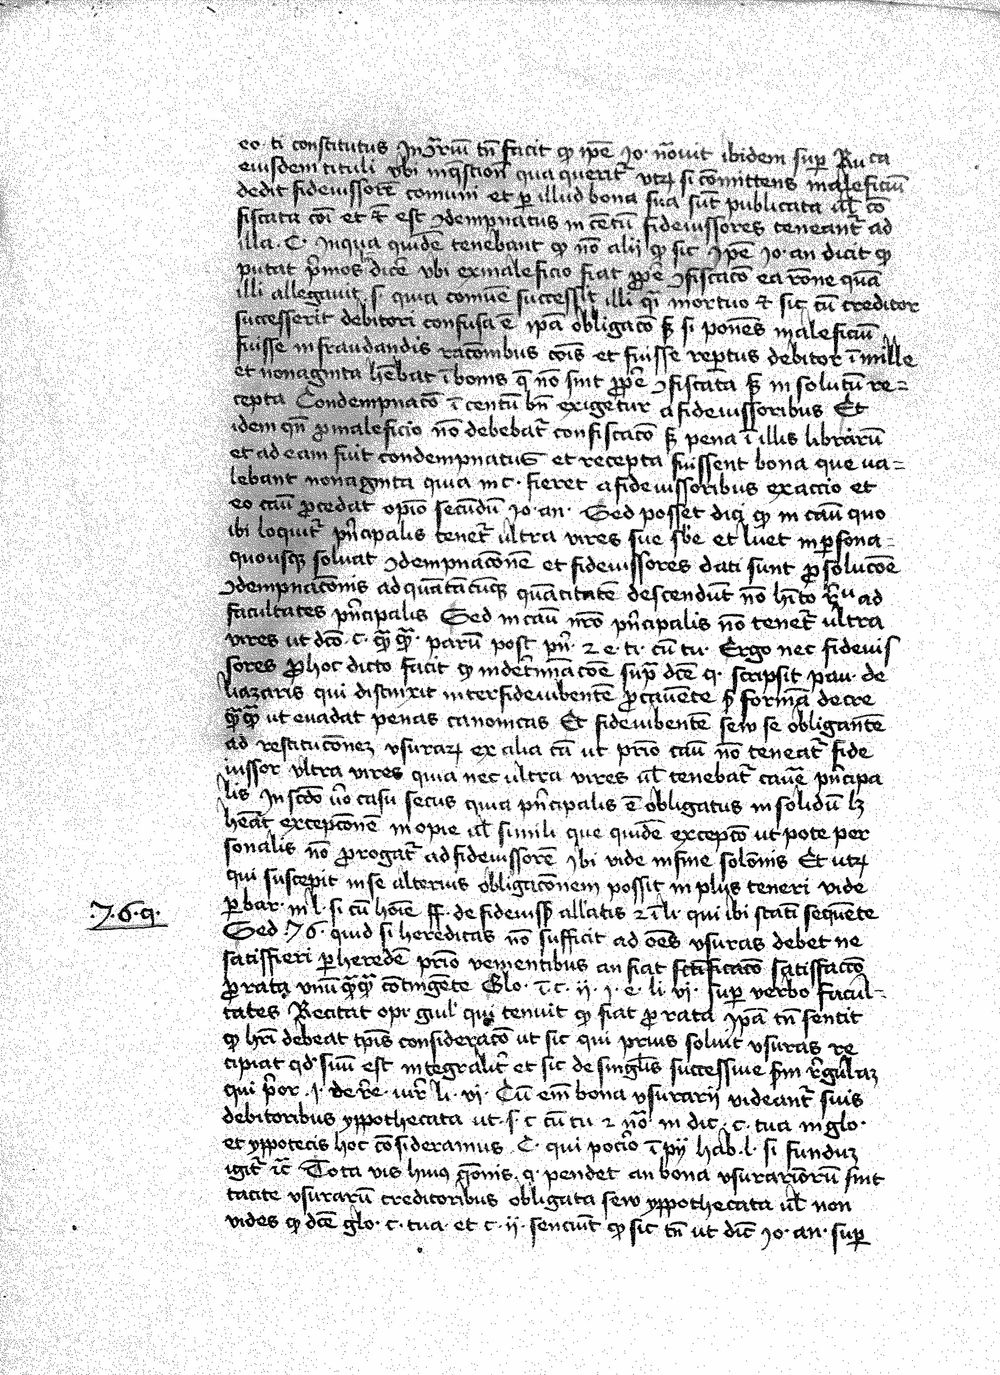 eo · ti constitutus In ɔ̄rīu tn̄ facit qͥ ip̄e Jo · nōuit ibidem sup̄ Ru ca
eiusdem tituli vbi in q̄stion̄ qua querit᷑ vtꝝ si cōmittens maleficiū
dedit fideiussorē comuni et ꝑ illud bona sua sūt publicata ul̄ cō
fiscata cōi et t̄ est ɔdempnatus in cētū fideiussores teneant᷑ ad
illa · C · In qua quidē tenebant qͥ nō alij qͥ sic ip̄e Jo · an dicit qͥ
putat p̄mos dicē vbi ex maleficio fiat ꝓpē ɔfiscatō ea rōne quā
illi allegauit · s · quia comūe successit illi qͥ mortuo t̄ sic cū creditor
successerit debitori confusa ē ip̄a obligatō sꝫ si ponēs maleficiū
fuisse in fraudandis racōnibus cōis et fuisse rep̄tus debitor ī mille
et nonaginta hēbat ī bonis q̄ nō sint ꝓpē ɔfiscata sꝫ in solutū re=
cepta Condempnatō ī centū bn̄ exigetur a fideiussoribus Et
idem qn̄ ꝓ maleficio nō debebat᷑ confiscatō sꝫ pena ī illis librarū
et ad eam fuit condempnatus et recepta fuissent bona que ua=
lebant nonaginta quia in c · fieret a fideiussoribus exaccio et
eo cāu ꝓcedat opīo secūdū Jo · an · Sed posset dici qͥ in cāu quo
ibi loquit᷑ pn̄cipalis tenet᷑ ultra vires sue sb̄e et luet in ꝑsona=
quousqꝫ soluat ɔdempnacōnē et fideiussores dati sunt ꝓ solucōe
ɔdempnacōnis ad quātācūqꝫ quātitatē descendūt nō hīto r̄u ad
facultates pn̄cipalis Sed in cāu nr̄o pn̄cipalis nō tenet᷑ ultra
vires ut dc̄o · c · qꝫ̄qꝫ̄ · parū post pn̄ · 2 e · ti · cū tu · Ergo nec fideius
sores ꝓ hoc dicto facit qͥ in det̄mīacōe sup̄ dc̄e q · scripsit pau · de
liazaris qui distinxit inter fideiubentē ꝓ cauēte s̄ formā decre
qꝫ̄qꝫ̄ ut euadat penas canonicas Et fideiubentē sew se obligantē
ad restitucōneꝫ vsuraꝝ ex alia cā ut prīo cāu nō teneat᷑ fide
iussor vltra vires quia nec ultra vires ul̄ tenebat᷑ cauē pn̄cipa
lis In scd̄o ūo casu secus quia pn̄cipalis ē obligatus in solidū lꝫ
hēat excepcōnē in opie ul̄ simili que quidē excepcō ut pote per
sonalis nō ꝓrogat᷑ ad fideiussorē Ibi vide in fine solēnis Et utꝝ
qui suscepit in se alterius obligacōnem possit in plus teneri vide
ꝑ bar · in l · si cū hōīe ff · de fideiuss̄ allatis 2 ī li · qui ibi stāti sequēte
· 76 · q · Sed · 76 · quid si hereditas nō sufficit ad ōes vsuras debet ne
satisfieri ꝑ heredē prīo venientibus an fiat satisfaccō
ꝓ rata vnū qꝫ̄qꝫ̄ cōtingēte Glo · ī · c · ij · j · e · li · vj · sup̄ verbo facul=
tates Recitat opi guil' qui tenuit qͥ fiat ꝓ rata ip̄a tn̄ sentit
qͥ hr̄i debeat tp̄is consideracō ut sic qui prius soluit vsuras re
cipiat qd' suū est integralit᷑ et sic de singul̄is successiue s̄m r̄gulaꝫ
qui p̄or · j · de re · iur̄ li · vj · Cū em̄ bona vsurarij videant᷑ suis
debitoribus yppothecata ut · s · c cū tu · 2 nō · in dic · c · tua in glo ·
et yppotecis hoc cōsideramus · C · qui pocīo ī py hab · l · si funduꝫ
igit᷑ īc̄ Tota vis huiꝰ q̄onis · q · pendet an bona vsurariorū sint
tacite vsurarū creditoribus obligata sew yppothecata ul̄ non
vides qͥ dc̄e glo · c · tua · et c · ij · senciūt qͥ sic tn̄ ut dic̄ Jo · an · sup̄